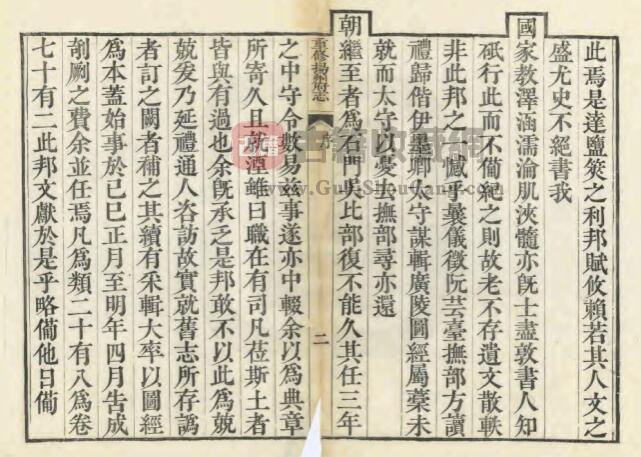 此焉是達鹽筴之利邦賦攸賴若其人文之
盛尤史不絕書我
國家教澤涵濡淪肌浹髓亦旣士盡敦書人知
砥行此而不僃紀之則故老不存遺文散軼
非此邦之一憾乎曩儀徵阮芸臺撫部方讀
禮歸偕伊墨卿太守謀輯廣陵圖經屬藁未
就而太守以憂去撫部尋亦還
朝繼至者爲石門吳比部復不能久其任三年
重修揚州府志
序
二
之中守令數易兹事遂亦中輟余以爲典章
所寄久且就湮雖曰職在有司凡莅斯土者
皆與有過也余旣承乏是邦敢不以此爲兢
兢爰乃延禮通人咨訪故實就舊志所存譌
者訂之闕者補之其續有采輯大率以圖經
爲本蓋始事於已巳正月至明年四月告成
剞劂之費余並任焉凡爲類二十有八爲卷
七十有二此邦文獻於是乎略僃他日僃